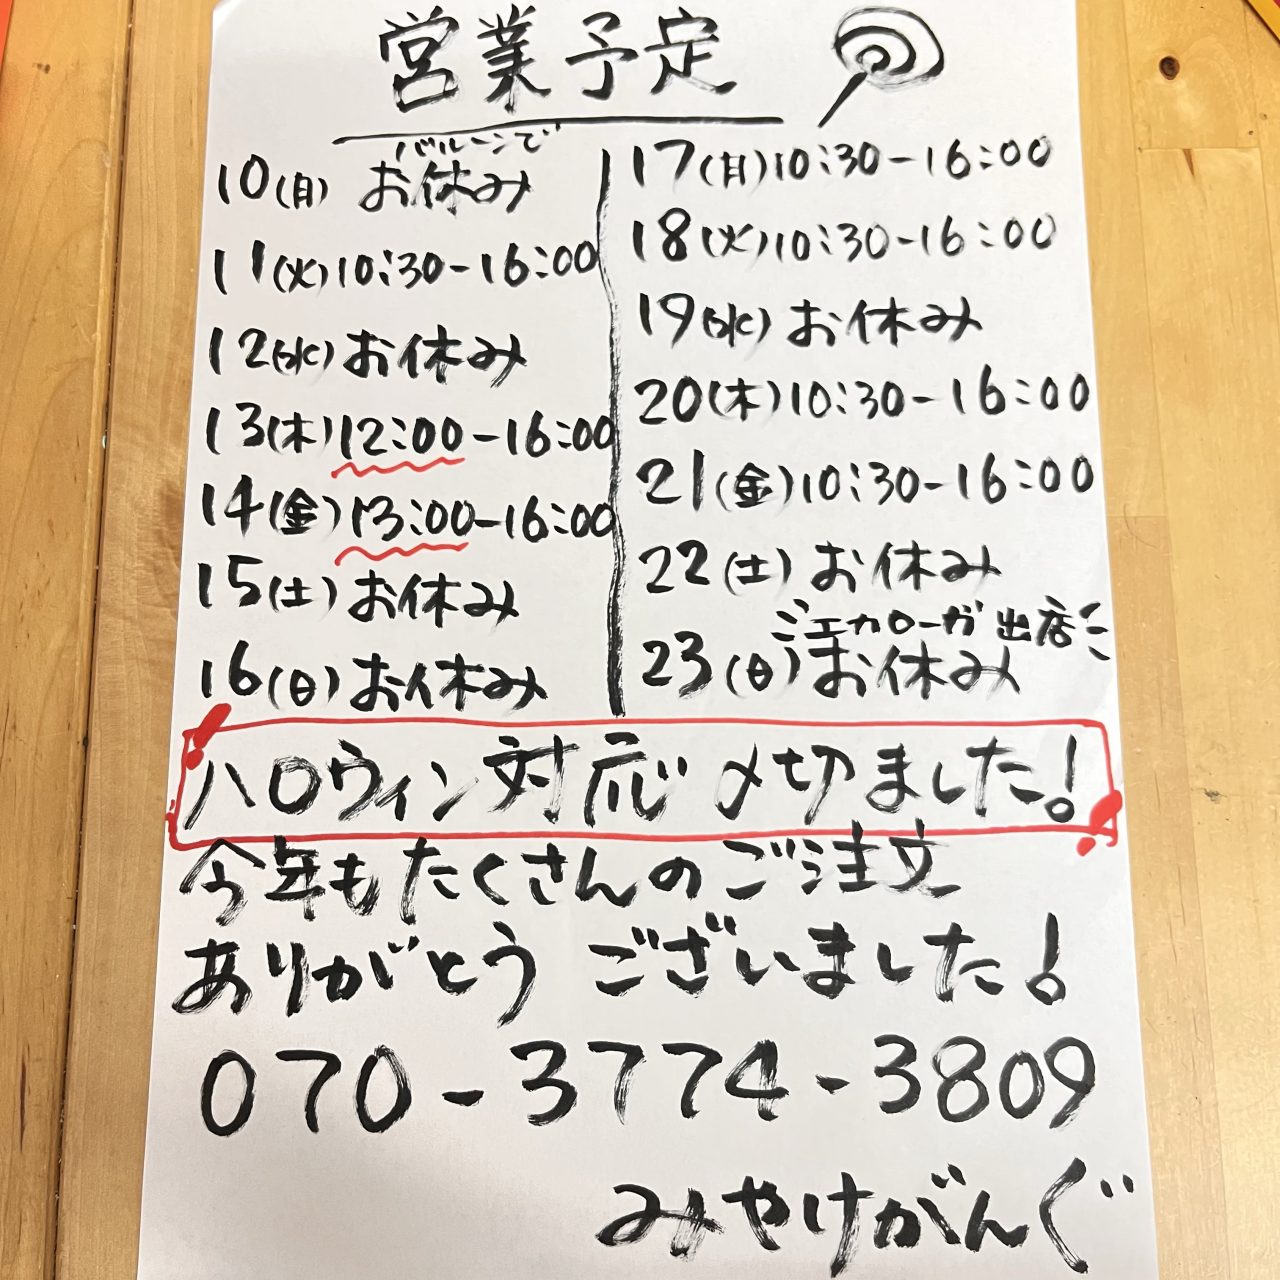 営業予定
バルーンで
10(月) お休み
11(火)10:30-16:00
12(水)お休み
13(木)12:00-16:00
14(金)13:00-16:00
15(土)お休み
16(日)お休み
17(月)10:30-16:00
18(火)10:30-16:00
19(水)お休み
20(木)10:30-16:00
21(金)10:30-16:00
22(土)お休み
エカローガ出店
23(日)お休み
ハロウィン対応〆切ました!
今年もたくさんのご注文
ありがとうございました!
070-3774-3809
みやけがんぐ